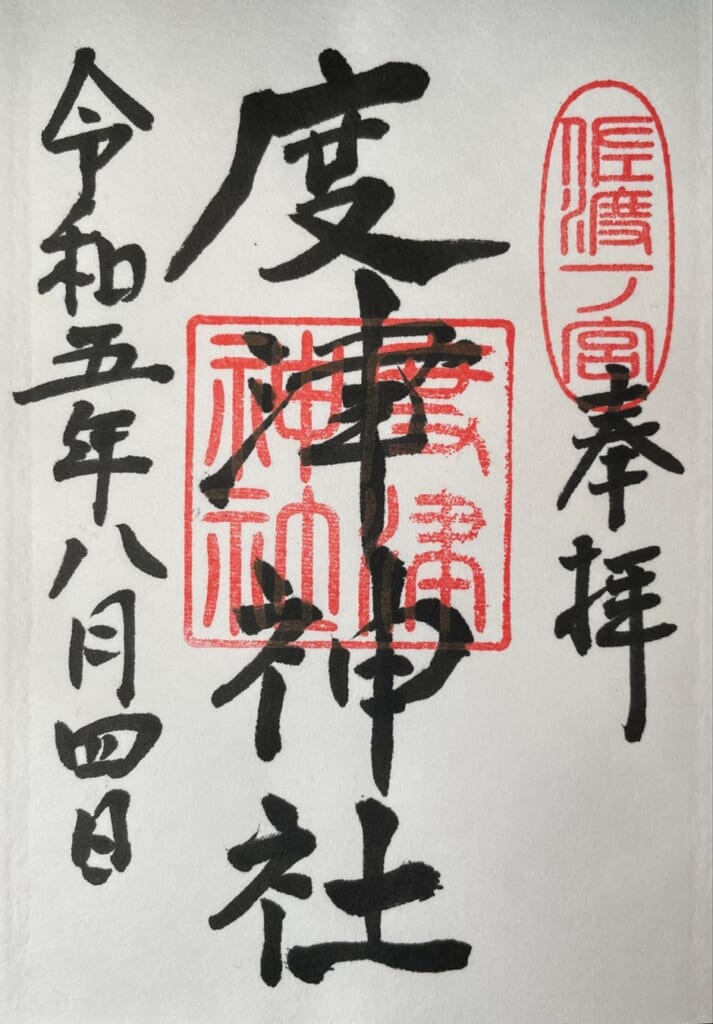 佐渡一ノ宮
奉拝
度津神社
度津
神社
令和五年八月四日